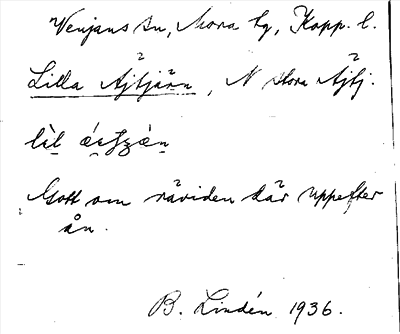 Venjans sn, Mora tg, Kopp. l.
Lilla Ájtjärn, N Stora Ájtj.
Gott om räviden där uppefter
ån.
B. Lindén 1936.